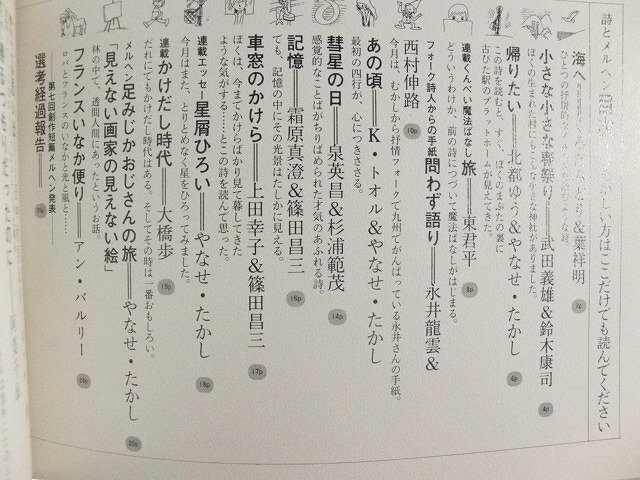 詩とメルヘン
しい方はここだけでも読んでください
海へ
&葉祥明
2p
ひとつの抒情的な
な詩。
小さな小さな夢祭り――武田義雄&鈴木康司
4p
ぼくの生まれた村にもこんな小さな神社がありました。
帰りたい――北都ゆう&やなせ・たかし
6p
この詩を読むと、すぐ、ぼくのまぶたの裏に
古びた駅のプラットホームが見えてきた。
連載くんぺい魔法ばなし 旅――東君平
8p
どういうわけか、前の詩につづいて魔法ばなしがはじまる。
フォーク詩人からの手紙 問わず語り――永井龍雲&
西村伸路
10p
今月は、むかしから抒情フォークで九州でがんばっている永井さんの手紙。
あの頃――K・トオル&やなせ・たかし
最初の四行が、心につきささる。
彗星の日――泉英昌&杉浦範茂
14p
感覚的なことばがちりばめられた才気のあふれる詩。
記憶――霜原真澄&篠田昌三
16p
でも、記憶の中にその光景はたしかに見える。
車窓のかけら――上田幸子&篠田昌三
17p
ぼくは、今までかけらばかり見て暮してきた
ような気がする……とこの詩を読んで思った。
連載エッセー 星屑ひろい――やなせ・たかし
18p
今月はまた、とりとめなく星をひろってみました。
連載 かけだし時代――大橋歩
19p
だれにでもかけだし時代はある。そしてその時は一番おもしろい。
メルヘン 足みじかおじさんの旅――やなせ・たかし
「見えない画家の見えない絵」
20p
林の中で、透明人間にあったというお話。
フランスいなか便り――アン・バルリー
24p
ロバとフランスのいなかと光と風と……
第七回創作短篇メルヘン発表
選考経過報告